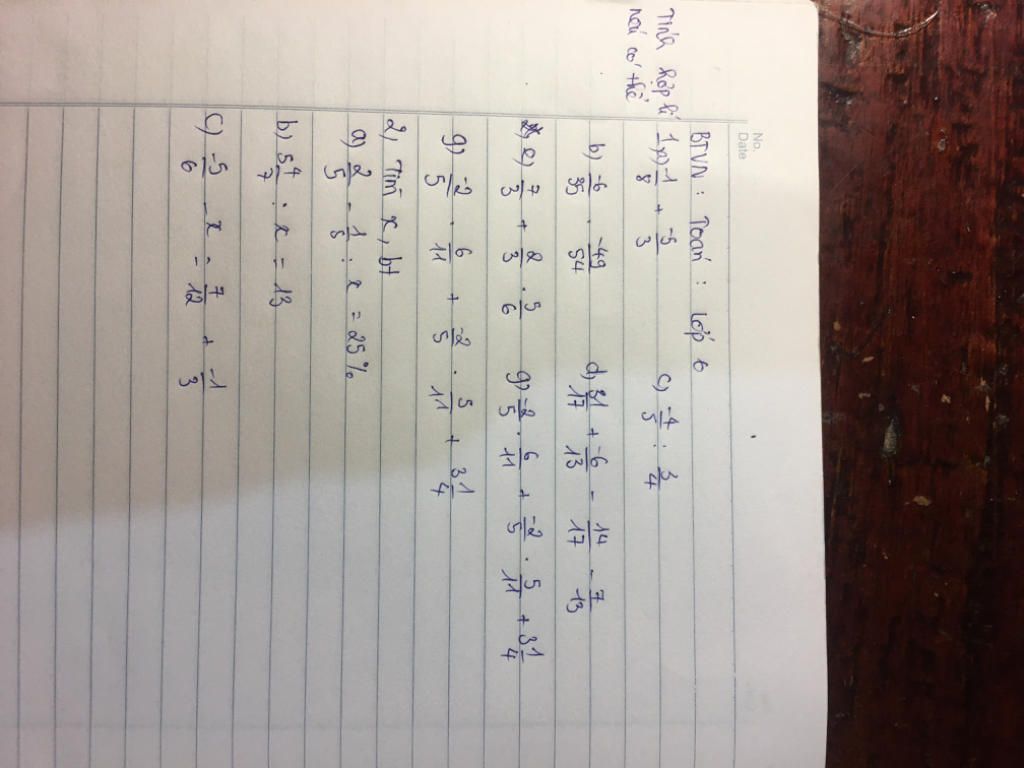 No.
Date
BTVN: Toán: lớp 6
Tính hợp lí nếu có thể
1, a) -1/8 + -5/3 c) -4/5 : 3/4
b) -6/35 . -49/54 d) 31/17 + -6/13 - 14/17 - 7/13
e) 7/3 + 2/3 . 5/6 g) -2/5 . 6/11 + -2/5 . 5/11 + 3 1/4
g) -2/5 . 6/11 + -2/5 . 5/11 + 3 1/4
2, Tìm x, bt
a) 2/5 - 1/5 : x = 25%
b) 5 4/7 : x = 13
c) -5/6 - x = 7/12 + -1/3